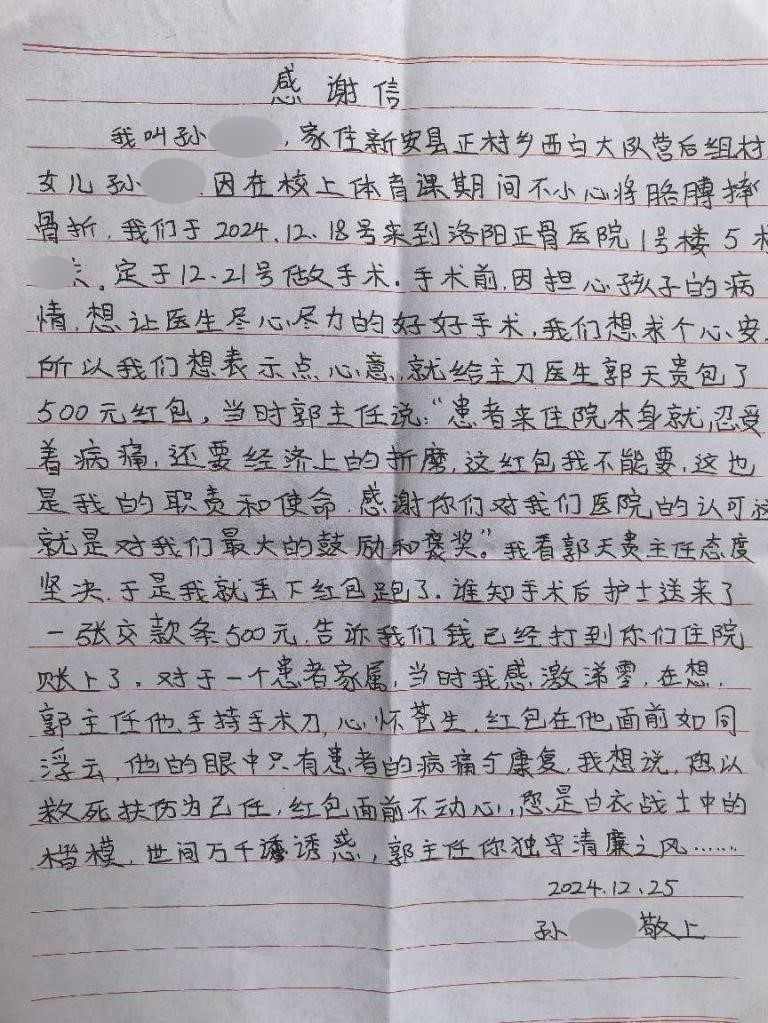 感谢信
我叫孙 ,家住新安县正村乡西白大队营后组村
女儿孙 因在校上体育课期间不小心将胳膊摔
骨折,我们于2024.12.18号来到洛阳正骨医院1号楼5
。定于12.21号做手术。手术前,因担心孩子的病
情,想让医生尽心尽力的好好手术,我们想求个心安,
所以我们想表示点心意,就给主刀医生郭天贵包了
500元红包,当时郭主任说:“患者来住院本身就忍受
着病痛,还要经济上的折磨,这红包我不能要,这也
是我的职责和使命.感谢你们对我们医院的认可这
就是对我们最大的鼓励和褒奖。”我看郭天贵主任态度
坚决,于是我就丢下红包跑了。谁知手术后护士送来了
一张交款条500元,告诉我们钱已经打到你们住院
账上了。对于一个患者家属,当时我感激涕零,在想,
郭主任他手持手术刀,心怀苍生,红包在他面前如同
浮云,他的眼中只有患者的病痛与康复,我想说,您以
救死扶伤为己任,红包面前不动心,,您是白衣战士中的
楷模,世间万千诱惑,郭主任你独守清廉之风……
2024.12.25
孙 敬上